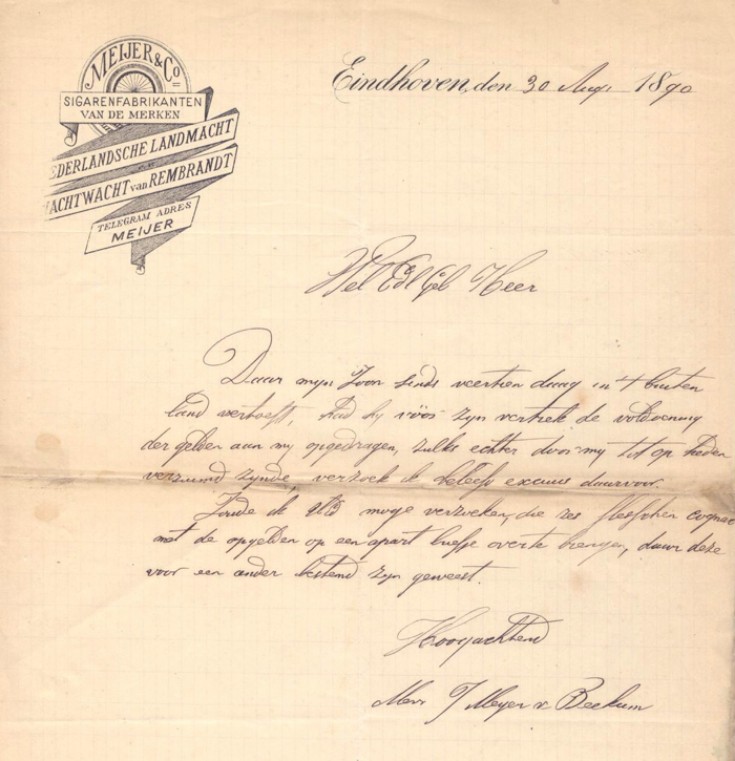 MEIJER & Co
SIGARENFABRIKANTEN
VAN DE MERKEN
EDERLANDSCHE LANDMACHT
ACHTWACHT van REMBRANDT
TELEGRAM ADRES
MEIJER
Eindhoven, den 30 Aug. 1890
Wel Ed Geb Heer
Daar mijn Zoon sinds veertien daag in 't buiten
land vertoeft, had hij vóór zijn vertrek de voldoening
der gelden aan mij opgedragen, zulks echter door mij tot op heden
verzuimd zijnde, verzoek ik beleefd excuus daarvoor.
Zoude ik UEd mogen verzoeken, die zes flesschen cognac
met de opgelden op een apart briefje over te brengen, daar deze
voor een ander bestemd zijn geweest.
Hoogachtend
Mevr J Meijer v Beekum